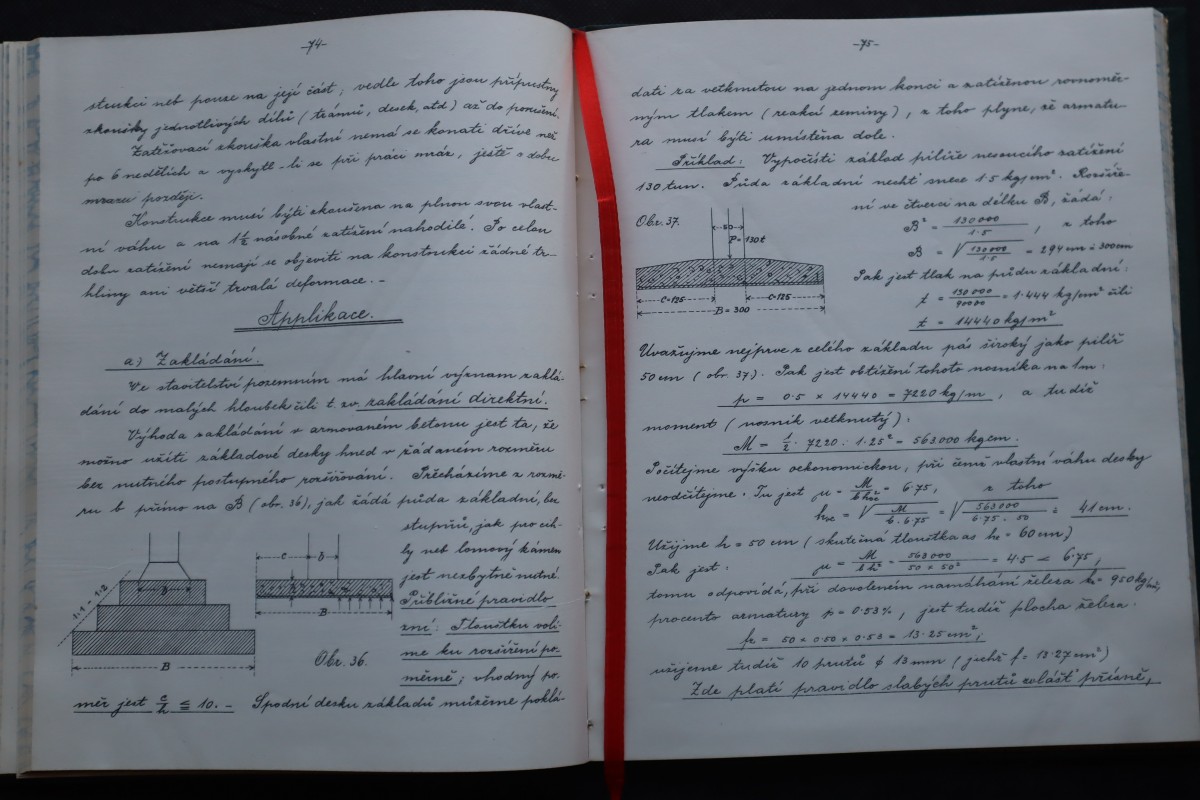 -74-
strukci neb pouze na její část; vedle toho jsou přípustny
zkoušky jednotlivých dílů (trámů, desek, atd) až do porušení.
Zatěžovací zkouška vlastní nemá se konati dříve než
po 6 nedělích a vyskytl-li se při práci mráz, ještě o dobu
mrazu později.
Konstrukce musí býti zkoušena na plnou svou vlast-
ní váhu a na 1½ násobné zatížení nahodilé. Po celou
dobu zatížení nemají se objeviti na konstrukci žádné tr-
hliny ani větší trvalá deformace. -
Applikace.
a) Zakládání.
Ve stavitelství pozemním má hlavní význam zaklá-
dání do malých hloubek čili t. zv. zakládání direktní.
Výhoda zakládání v armovaném betonu jest ta, že
možno užíti základové desky hned v žádaném rozměru
bez nutného postupného rozšiřování. Přecházíme z rozmě-
ru b přímo na B (obr. 36), jak žádá půda základní, bez
stupňů, jak pro cih-
ly neb lomový kámen
jest nezbytně nutné.
Přibližné pravidlo
zní: Tloustku volí-
me ku rozšíření po-
měrně; vhodný po-
měr jest c/h ≦ 10. - Spodní desku základů můžeme poklá-
1:1 - 1:2
b
B
c
b
h
B
Obr. 36.
-75-
dati za vetknutou na jednom konci a zatíženou rovnoměr-
ným tlakem (reakcí zeminy), z toho plyne, že armatu-
ra musí býti umístěna dole.
Příklad: Vypočísti základ pilíře nesoucího zatížení
130 tun. Půda základní nechť snese 1·5 kg/cm². Rozšíře-
ní ve čtverci na délku B, žádá:
B² = 130000/1·5, z toho
B = √130000/1·5 = 294 cm ≐ 300 cm
Pak jest tlak na půdu základní:
t = 130000/90000 = 1·444 kg/cm² čili
t = 14440 kg/m²
Obr. 37.
50
P = 130 t
C=125
C=125
B = 300
Uvažujme nejprve z celého základu pás široký jako pilíř
50 cm (obr. 37). Pak jest obtížení tohoto nosníka na 1 m:
p = 0·5 × 14440 = 7220 kg/m, a tudíž
moment (nosník vetknutý):
M = ½ · 7220 · 1·25² = 563000 kgcm.
Počítejme výšku oekonomickou, při čemž vlastní váhu desky
neodčítejme. Tu jest μ = M/b h² = 6·75, z toho
h = √M/b·6·75 = √563000/6·75·50 = 41 cm.
Užijme h = 50 cm (skutečná tloustka as h = 60 cm)
Pak jest: μ = M/b h² = 563000/50 × 50² = 4·5 < 6·75,
tomu odpovídá, při dovoleném namáhání železa k = 950 kg/cm²,
procento armatury p = 0·53%, jest tudíž plocha železa.
f = 50 × 0·50 × 0·53 = 13·25 cm²,
užijeme tudíž 10 prutů φ 13 mm (jichž f = 13·27 cm²)
Zde platí pravidlo slabých prutů zvlášť přísně,